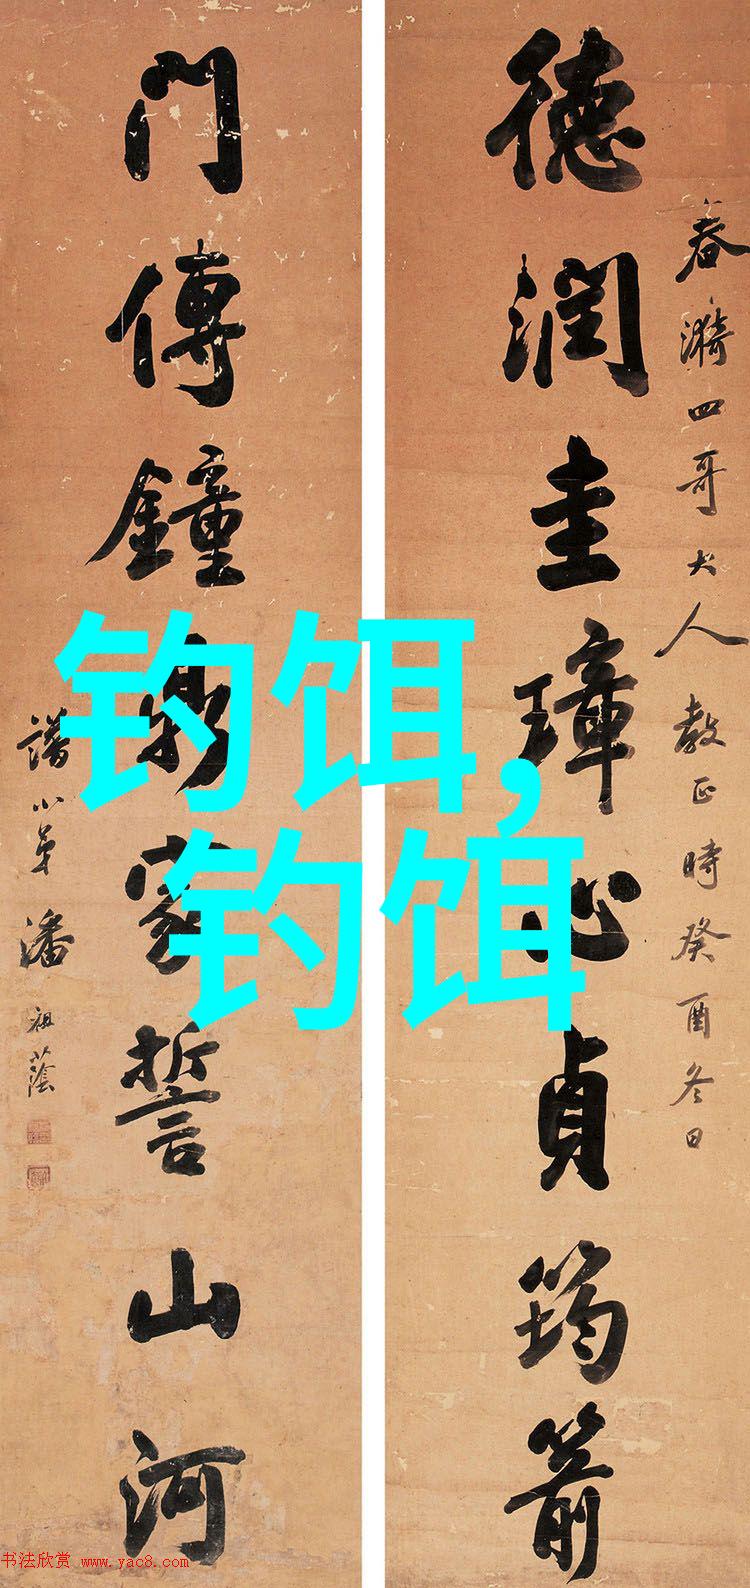 德潤圭璋心貞筠箭
春漪四哥大人教正時癸酉冬日
門傳鐘鼎家誓山河
譜小弟潘祖蔭
钓饵，
钓饵
书法欣赏 www.yac8.com